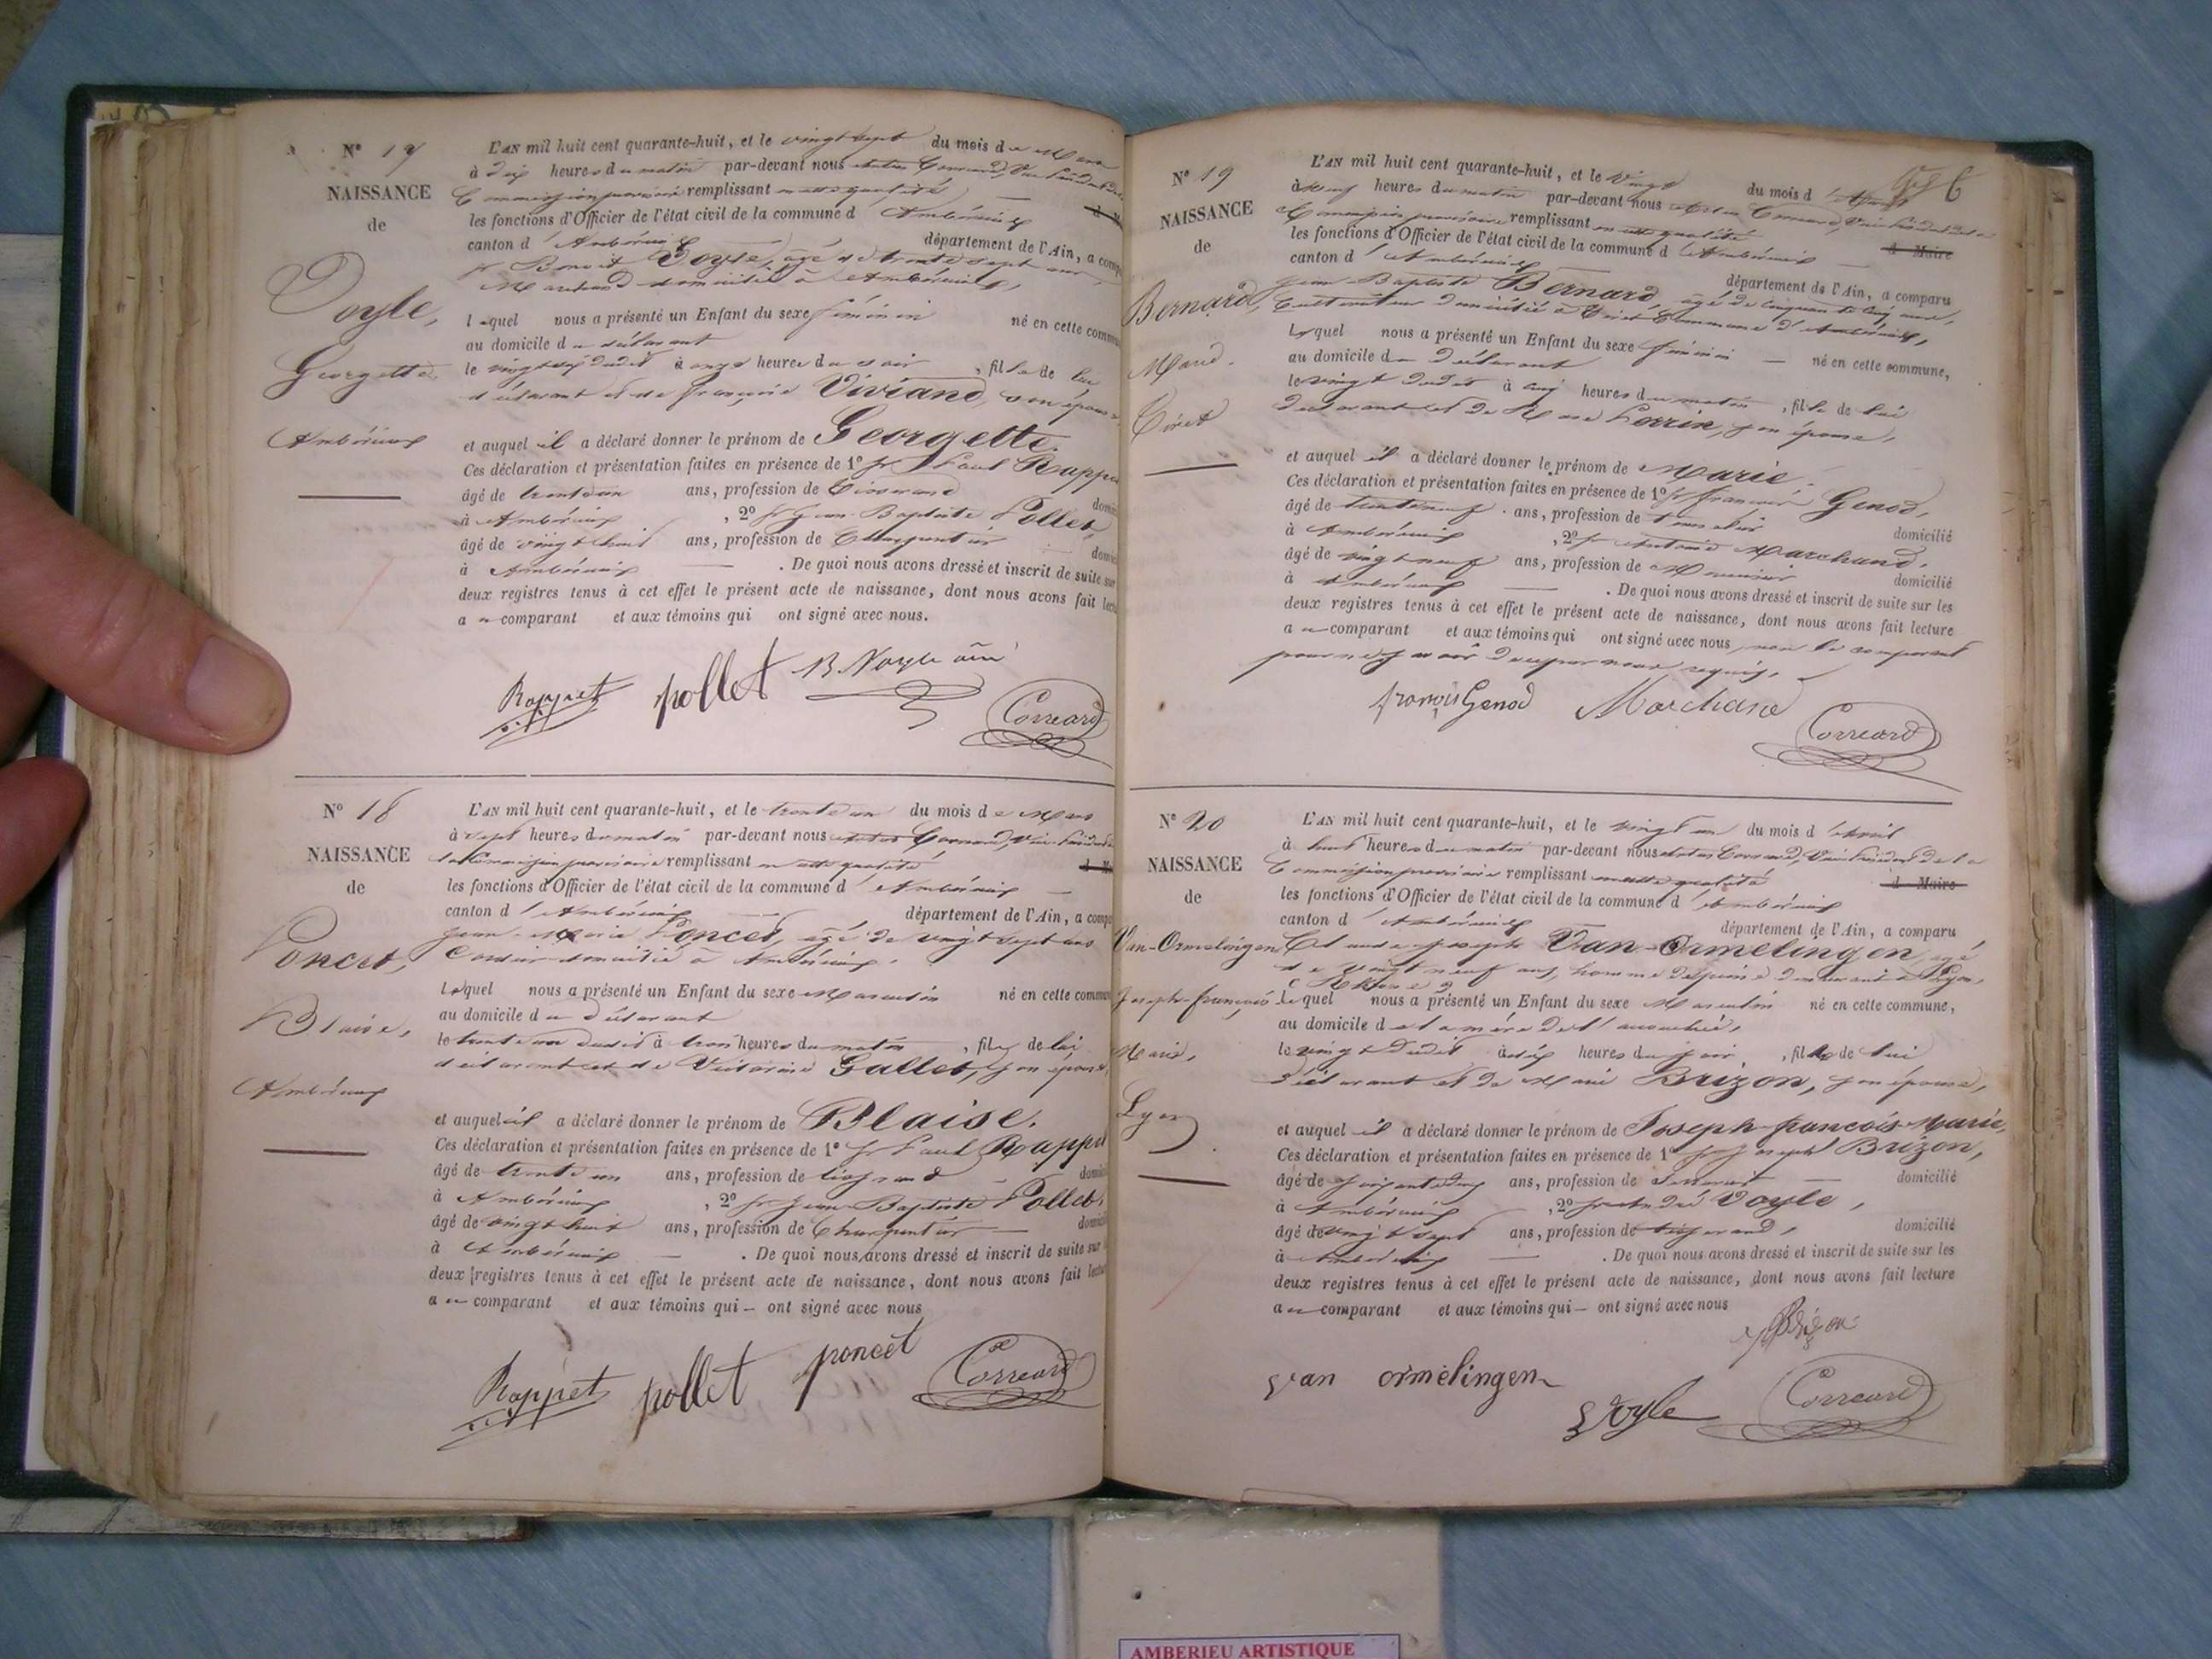 Nº 17
NAISSANCE
de
Voyle,
Georgette
Ambérieux
L'AN mil huit cent quarante-huit, et le vingt sept du mois de Mars
à dix heures du matin par-devant nous Correard,
Commission provisoire remplissant en cette qualité
les fonctions d'Officier de l'état civil de la commune d Ambérieux
canton d'Ambérieux département de l'Ain, a comp
sr Benoit Voyle, âgé de trente sept ans,
Marchand domicilié à Ambérieux,
lequel nous a présenté un Enfant du sexe féminin né en cette commu
au domicile du déclarant
le vingt six dudit à onze heures du soir, fille de lui
déclarant et de françoise Viviand, son épouse,
et auquel il a déclaré donner le prénom de Georgette.
Ces déclaration et présentation faites en présence de 1º sr Paul Rappe
âgé de trente un ans, profession de Tisserand domici
à Ambérieux, 2º sr Jean-Baptiste Pollet,
âgé de vingt huit ans, profession de Charpentier domic
à Ambérieux. De quoi nous avons dressé et inscrit de suite sur
deux registres tenus à cet effet le présent acte de naissance, dont nous avons fait lectu
au comparant et aux témoins qui ont signé avec nous.
Rappet pollet B. Voyle Correard
Nº 18
NAISSANCE
de
Poncet,
Blaise,
Ambérieux
L'AN mil huit cent quarante-huit, et le trente un du mois de Mars
à sept heures du matin par-devant nous Correard,
la Commission provisoire remplissant en cette qualité
les fonctions d'Officier de l'état civil de la commune d'Ambérieux
canton d'Ambérieux département de l'Ain, a compa
Jean-Marie Poncet, âgé de vingt sept ans
domicilié à Ambérieux.
Lequel nous a présenté un Enfant du sexe Masculin né en cette commun
au domicile du déclarant
le trente un dudit à trois heures du matin, fils de lui
déclarant et de Victorine Gallet, son épouse,
et auquel il a déclaré donner le prénom de Blaise.
Ces déclaration et présentation faites en présence de 1º sr Paul Rappe
âgé de trente un ans, profession de tisserand domici
à Ambérieux, 2º sr Jean-Baptiste Pollet,
âgé de vingt huit ans, profession de Charpentier domicil
à Ambérieux. De quoi nous avons dressé et inscrit de suite sur
deux registres tenus à cet effet le présent acte de naissance, dont nous avons fait lectu
au comparant et aux témoins qui ont signé avec nous
Rappet pollet poncet Correard
Nº 19
NAISSANCE
de
Bernard,
Marie.
Tiret
L'AN mil huit cent quarante-huit, et le vingt du mois d'Avril
à neuf heures du matin par-devant nous Correard,
Commission provisoire remplissant en cette qualité d Maire
les fonctions d'Officier de l'état civil de la commune d'Ambérieux
canton d'Ambérieux département de l'Ain, a comparu
Jean Baptiste Bernard, âgé de cinquante cinq ans,
Cultivateur domicilié à Tiret Commune d'Ambérieux,
Lequel nous a présenté un Enfant du sexe féminin né en cette commune,
au domicile du déclarant
le vingt dudit à cinq heures du matin, fille de lui
déclarant et de Marie Perrin, son épouse,
et auquel il a déclaré donner le prénom de Marie.
Ces déclaration et présentation faites en présence de 1º sr françois Genod,
âgé de trente neuf ans, profession de domicilié
à Ambérieux, 2º sr Antoine Marchand,
âgé de vingt neuf ans, profession de domicilié
à Ambérieux. De quoi nous avons dressé et inscrit de suite sur les
deux registres tenus à cet effet le présent acte de naissance, dont nous avons fait lecture
au comparant et aux témoins qui ont signé avec nous, non le comparant
pour ne savoir de ce par nous requis.
françois Genod Marchand Correard
Nº 20
NAISSANCE
de
Van-Ormelingen
Joseph-françois
Marie,
Lyon
L'AN mil huit cent quarante-huit, et le vingt un du mois d'avril
à huit heures du matin par-devant nous Correard, Vice Président de la
Commission provisoire remplissant en cette qualité d Maire
les fonctions d'Officier de l'état civil de la commune d'Ambérieux
canton d'Ambérieux département de l'Ain, a comparu
Claude Joseph Van-Ormelingen, âgé
de vingt neuf ans, homme de peine demeurant à Lyon,
(Rhône)
Lequel nous a présenté un Enfant du sexe Masculin né en cette commune,
au domicile de la mère de l'accouchée,
le vingt dudit à dix heures du soir, fils de lui
déclarant et de Marie Brizon, son épouse,
et auquel il a déclaré donner le prénom de Joseph-francois-Marie,
Ces déclaration et présentation faites en présence de 1º sr Joseph Brizon,
âgé de ans, profession de Serrurier domicilié
à Ambérieux, 2º sr André Voyle,
âgé de vingt sept ans, profession de tisserand, domicilié
à Ambérieux. De quoi nous avons dressé et inscrit de suite sur les
deux registres tenus à cet effet le présent acte de naissance, dont nous avons fait lecture
au comparant et aux témoins qui ont signé avec nous
Brizon
van ormelingen Voyle Correard
AMBERIEU ARTISTIQUE